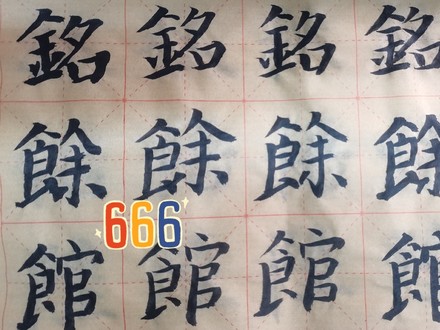 銘銘銘銘
餘餘餘餘
666
館館館館